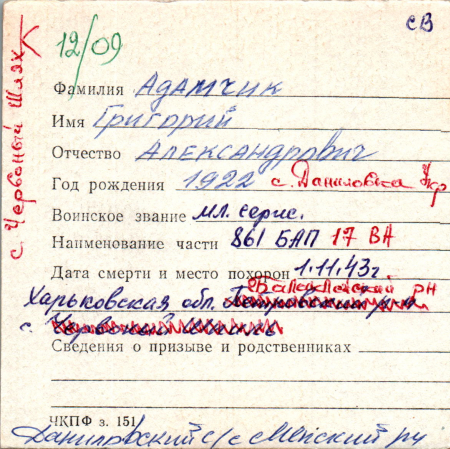 св
12/09
с. Червоный Шлях
Фамилия Адамчик
Имя Григорий
Отчество Александрович
Год рождения 1922 с. Даниловка Укр
Воинское звание мл. серж.
Наименование части 861 БАП 17 ВА
Дата смерти и место похорон 1.11.43г
Балаклейский рн
Харьковская обл.
с.
Сведения о призыве и родственниках
ЧКПФ з. 151
Даниловский с/с Менский рн